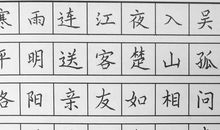 寒雨连江夜入吴
平明送客楚山孤
洛阳亲友如相问